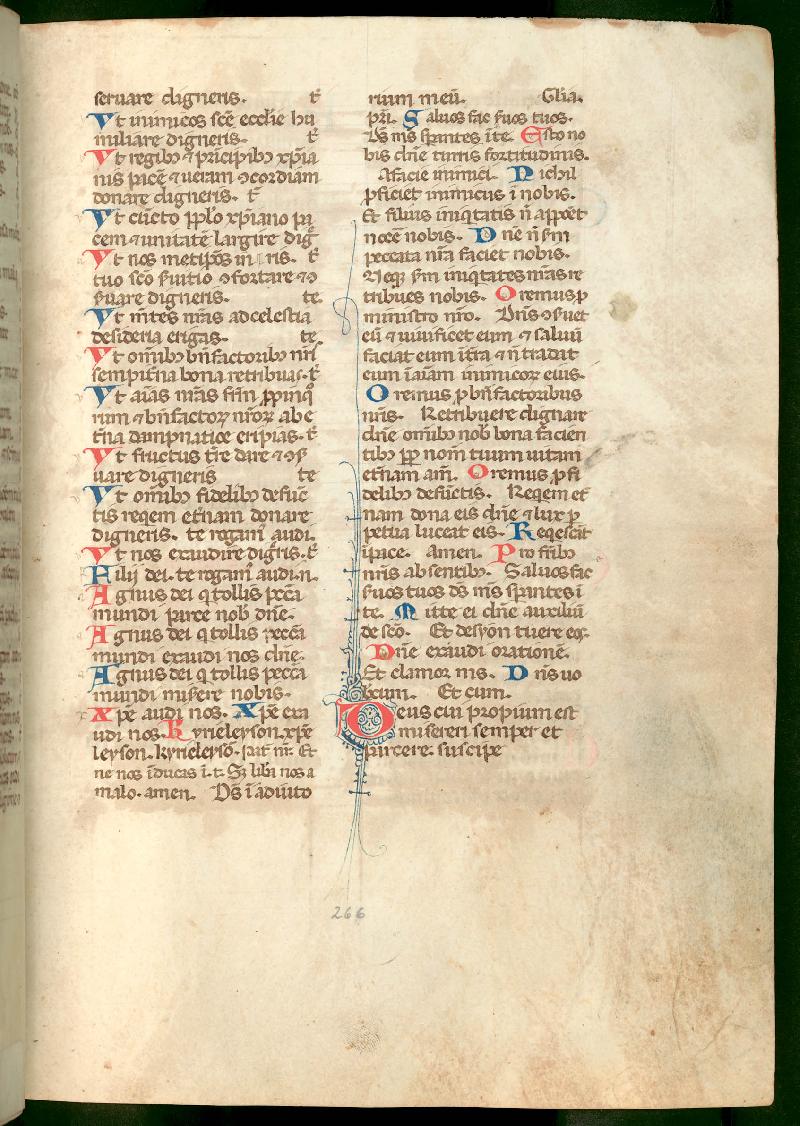 seruare digneris. t̄
Vt inimicos scē ecclīe hu
miliare digneris. t̄
Vt regibꝫ ⁊ principibꝫ xp̄ia
nis pacē ⁊ ueram ꝯcordiam
donare digneris. t̄
Vt cūcto pp̄lo xp̄iano pa
cem ⁊ unitatē largire diḡ
Vt nos metip̄os in t̄
tuo sc̄o ſuitio ꝯfortare ⁊ ꝯ
ſuare digneris. te.
Vt mētes nr̄as ad celestia
desideria erigas. te.
Vt omībꝫ bn̄factoribꝫ nr̄is
sempit̄na bona retribuas. t̄
Vt aīas nr̄as frm̄ ꝓpinq̄
rum ⁊ bn̄factoꝝ nr̄oꝝ ab e
t̄na dampnatiōe eripias. t̄
Vt fructus t̄re dare ⁊ ꝯſ
uare digneris te
Vt omībꝫ fidelibꝫ defūc
tis reqem et̄nam donare
digneris. te rogam̄ audi.
Vt nos exaudire diḡris. t̄
Filij dei. te rogam̄ audi n.
Agnus dei q tollis pcc̄a
mundi parce nob̄ dn̄e.
Agnus dei q tollis pecc̄a
mundi exaudi nos dn̄e.
Agnus dei q tollis pecc̄a
mundi misere nobis.
Xp̄e audi nos. Xp̄e exa
udi nos. Kyrieleyson. xp̄e
leyson. kyrieleysō. pat̄ nr̄. Et
ne nos īducas ī. t. Sꝫ libera nos a
malo. amen. Ds̄ ī adiuto
rium meū. Glīa.
pr̄i. Saluos fac ſuos tuos.
Ds̄ ms̄ sp̄antes ī te. Esto no
bis dn̄e turris fortitudinis.
A facie inimici. Nichil
ꝓficiet inimicus ī nobis.
Et filius iniq̄tatis n̄ appōet
nocē nobis. Dn̄e n̄ sm̄
peccata nr̄a faciet nobis.
Neqꝫ sm̄ iniq̄tates nr̄as re
tribues nobis. Oremus ꝓ
ministro nr̄o. Dn̄s ꝯſuet
eū ⁊ uiuificet eum ⁊ saluū
faciat eum ī t̄ra ⁊ n̄ tradat
eum ī aīam inimicoꝝ eius.
Oremus ꝓ bn̄factoribus
nr̄is. Retribuere dignare
dn̄e omībꝫ nob̄ bona facien
tibꝫ ꝓp̄ nom̄ tuum uitam
et̄nam am̄. Oremus ꝓ fi
delibꝫ defūctis. Reqem et̄
nam dona eis dn̄e ⁊ lux ꝑ
petua luceat eis. Reqescāt
ī pace. Amen. Pro fr̄ibꝫ
nr̄is absentibꝫ. Saluos fac
ſuos tuos ds̄ ms̄ sp̄antes ī
te. Mitte ei dn̄e auxiliū
de sc̄o. Et de syon tuere eos.
Dn̄e exaudi orationē.
Et clamor ms̄. Dn̄s uo
bcum. Et cum.
Deus cui propium est
misereri semper et
parcere: suscipe
266